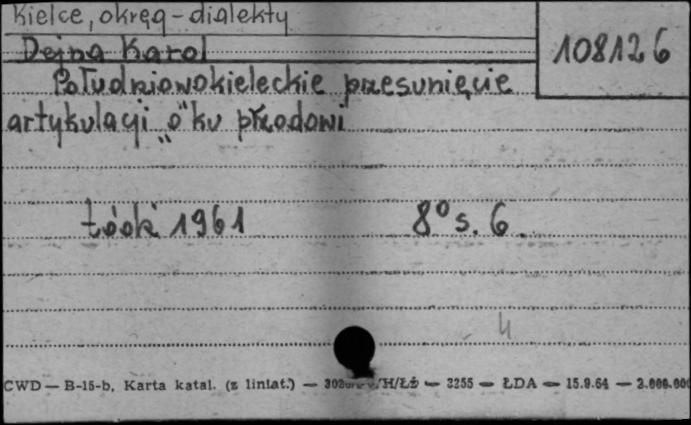 Kielce, okręg - dialekty
108126
Dejna Karol
Południowokieleckie przesunięcie
artykulacji „o" ku przodowi
Łódź 1961 8° s. 6.
4
CWD — B-15-b, Karta katal. (z liniat.) — /H/ŁŻ — 3255 — ŁDA — 15.9.64 — 2.000.000